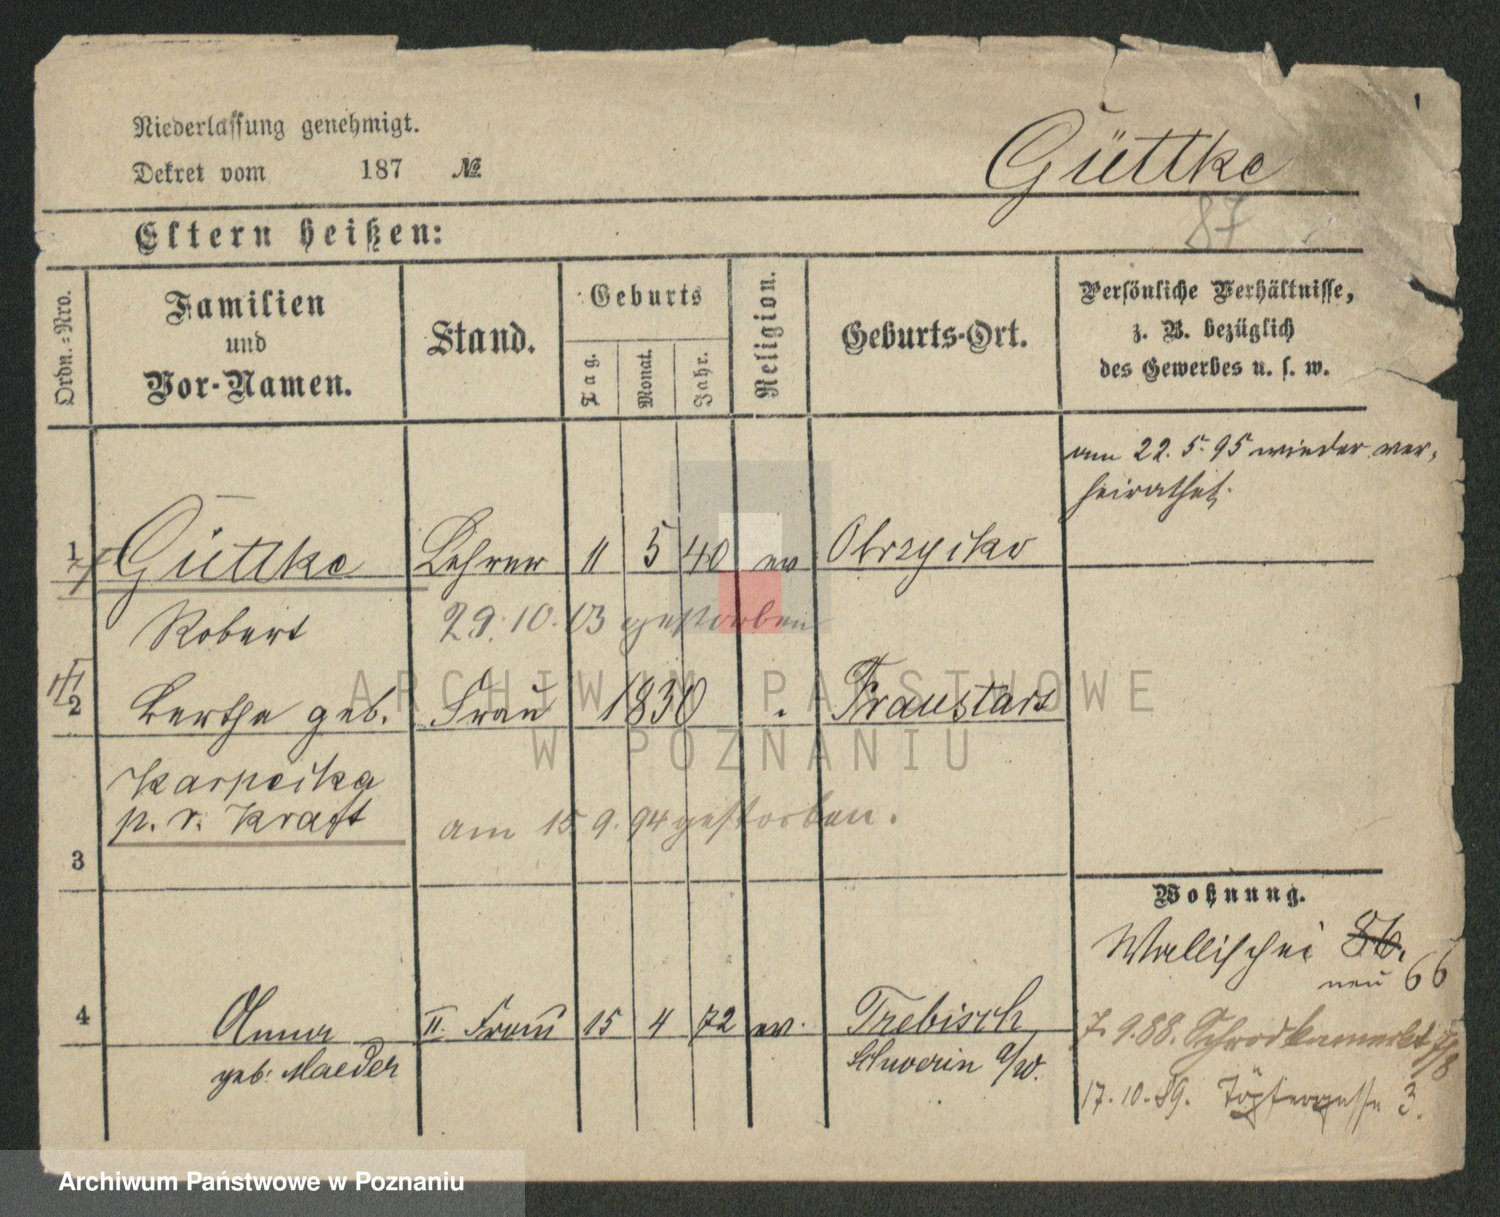 Niederlassung genehmigt.
Dekret vom 187 №
Güttke
87
Eltern heißen:
Ordn.-Nro.
Familien
und
Vor-Namen.
Stand.
Geburts
Tag.
Monat.
Jahr.
Religion.
Geburts-Ort.
Persönliche Verhältnisse,
z. B. bezüglich
des Gewerbes u. s. w.
am 22. 5. 95 wieder ver-
heirathet.
1 Güttke Lehrer 11 5 40 ev Obrzycko
Robert 29. 10. 03 gestorben
2 Bertha geb. Frau 1830 Fraustadt
Karpeika
p. v. Kraft am 15 9. 94 gestorben.
3
Wohnung.
Wallischei 86.
neu 66
4 Anna II. Frau 15 4 72 ev. Trebisch
geb. Maeder Schwerin a/W.
7. 9. 88. Schrodkamarkt 7/8
17. 10. 89. Töpfergasse 3.
ARCHIWUM PAŃSTWOWE
W POZNANIU
Archiwum Państwowe w Poznaniu